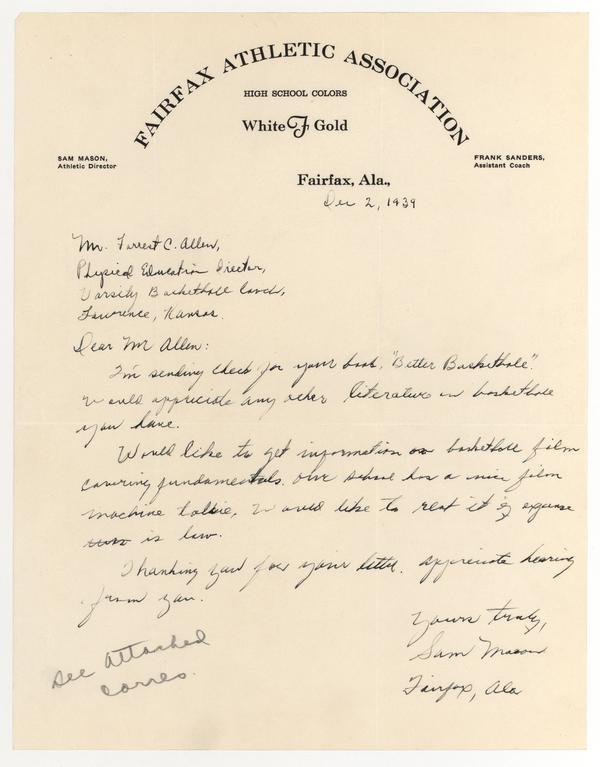 FAIRFAX ATHLETIC ASSOCIATION
HIGH SCHOOL COLORS
White F Gold
SAM MASON,
Athletic Director
FRANK SANDERS,
Assistant Coach
Fairfax, Ala.,
Dec 2, 1939
Mr. Forrest C. Allen,
Physical Education Director,
Varsity Basketball Coach,
Lawrence, Kansas.
Dear Mr Allen:
I'm sending check for your book, "Better Basketball".
Would appriciate any other literature on basketball
you have.
Would like to get information on basketball film
covering fundamentals. Our school has a nice film
machine talkie, Would like to rent it if expense
is low.
Thanking you for your letter. appriciate hearing
from you.
Yours truly,
Sam Mason
Fairfax, Ala
See attached
corres.